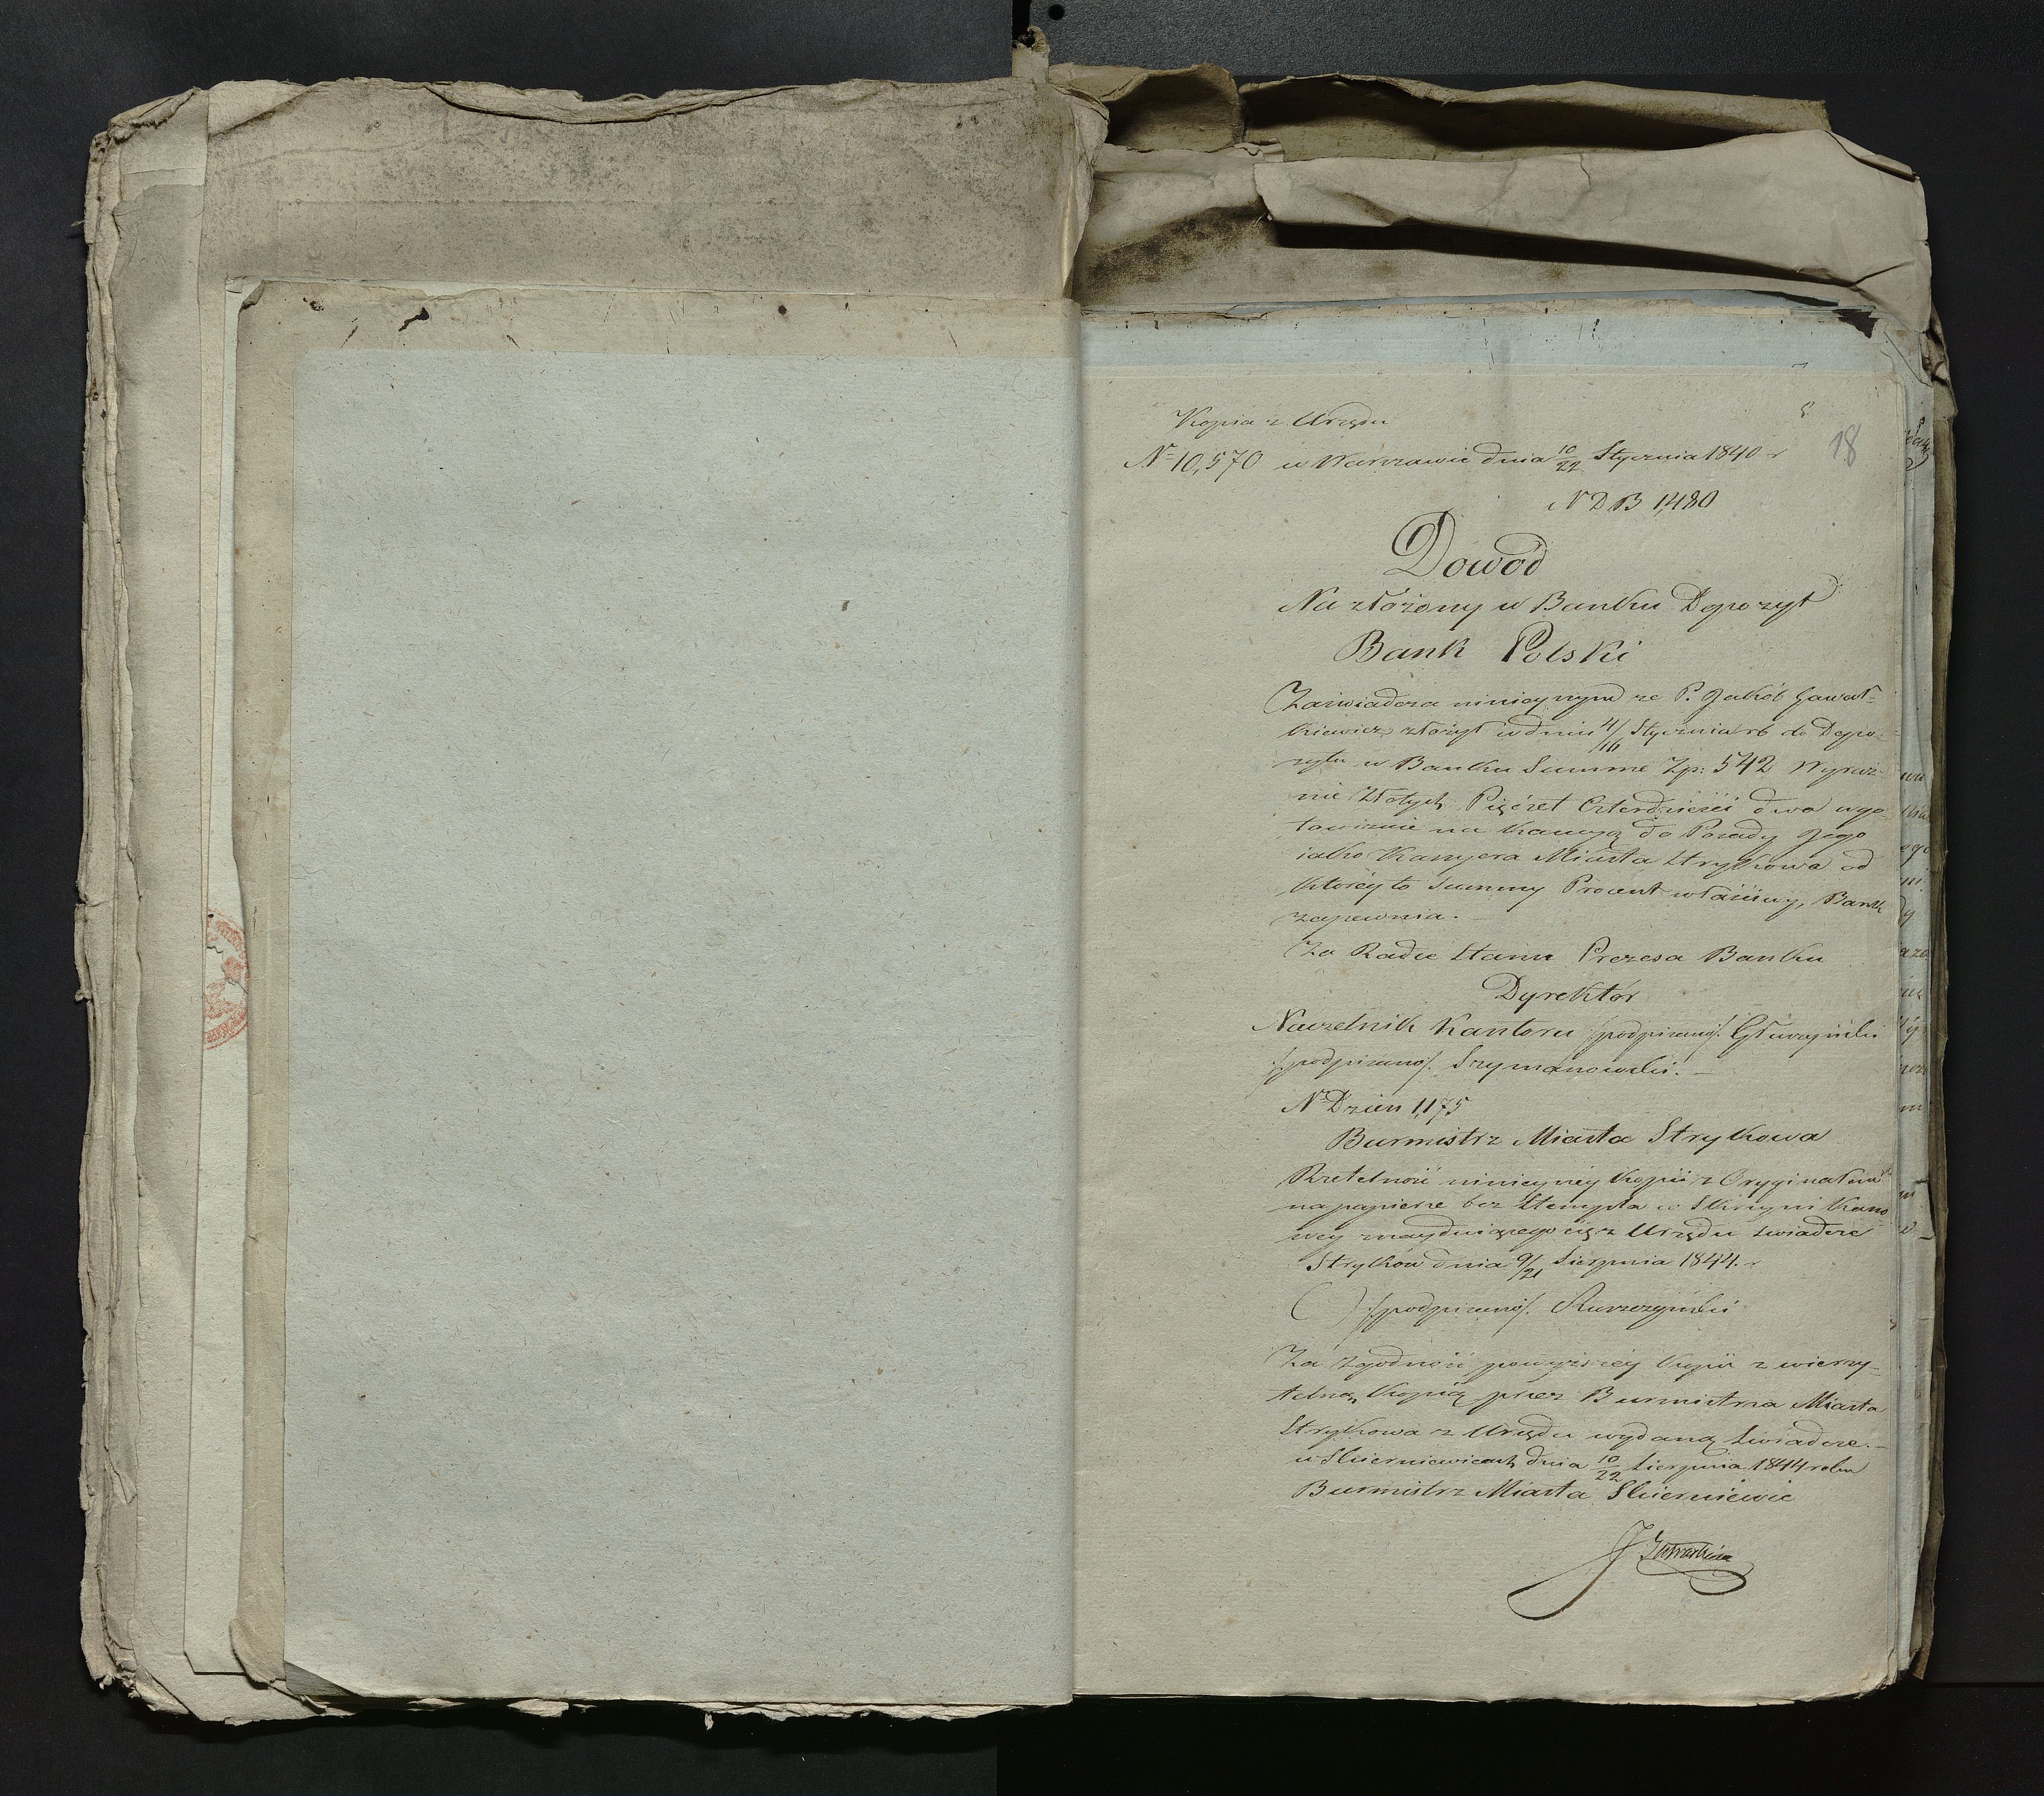 Kopia z Urzędu
18
Nr 10,570 w Warszawie dnia 10/22 Stycznia 1840 r
N D B 1,480
Dowód
Na złożony w Banku Depozyt
Bank Polski
Zaświadcza ninieyszym ze P. Jakób Gawał-
kiewicz złożył w dniu 4/16 Stycznia rb do Depo-
zytu w Banku Summe Zp: 542 Wyraź-
nie Złotych Pięćset Czterdzieści dwa w go-
towiznie na Kaucyą do Posady Jego
iako Kassyera Miasta Strykowa od
któréy to Summy Procent właściwy, Bank
zapewnia. —
Za Radcę Stanu Prezesa Banku
Dyrektór
Naczelnik Kantoru /:podpisano/:
/:podpisano/: Szymanowski. —
Nr Dzien 1,175
Burmistrz Miasta Strykowa
Rzetelność ninieyszéy kopii z Oryginałem
na papierze bez Stempla w Skrzyni Kasso-
wey znayduiącego się z Urzędu świadcze
Stryków dnia 9/21 Sierpnia 1844. r
( ) /:podpisano/:
Za zgodność powyższéy kopii z wierzy-
telną kopią przez Burmistrza Miasta
Strykowa z Urzędu wydaną świadcze. —
w Skierniewicach dnia 10/22 Sierpnia 1844 roku
Burmistrz Miasta Skierniewic